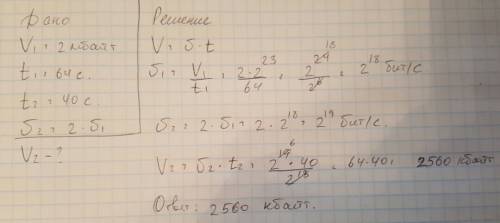 Дано
V₁ = 2 кбайт
t₁ = 64 с.
t₂ = 40 с.
δ₂ = 2 · δ₁
V₂ - ?
Решение
V = δ · t
δ₁ = V₁/t₁ = 2·2²³/64 = 2²⁴/2⁶ = 2¹⁸ бит/с
δ₂ = 2 · δ₁ = 2 · 2¹⁸ = 2¹⁹ бит/с.
V₂ = δ₂ · t₂ = 2¹⁹ · 40/2¹³ = 64·40 = 2560 кбайт.
Ответ: 2560 кбайт.